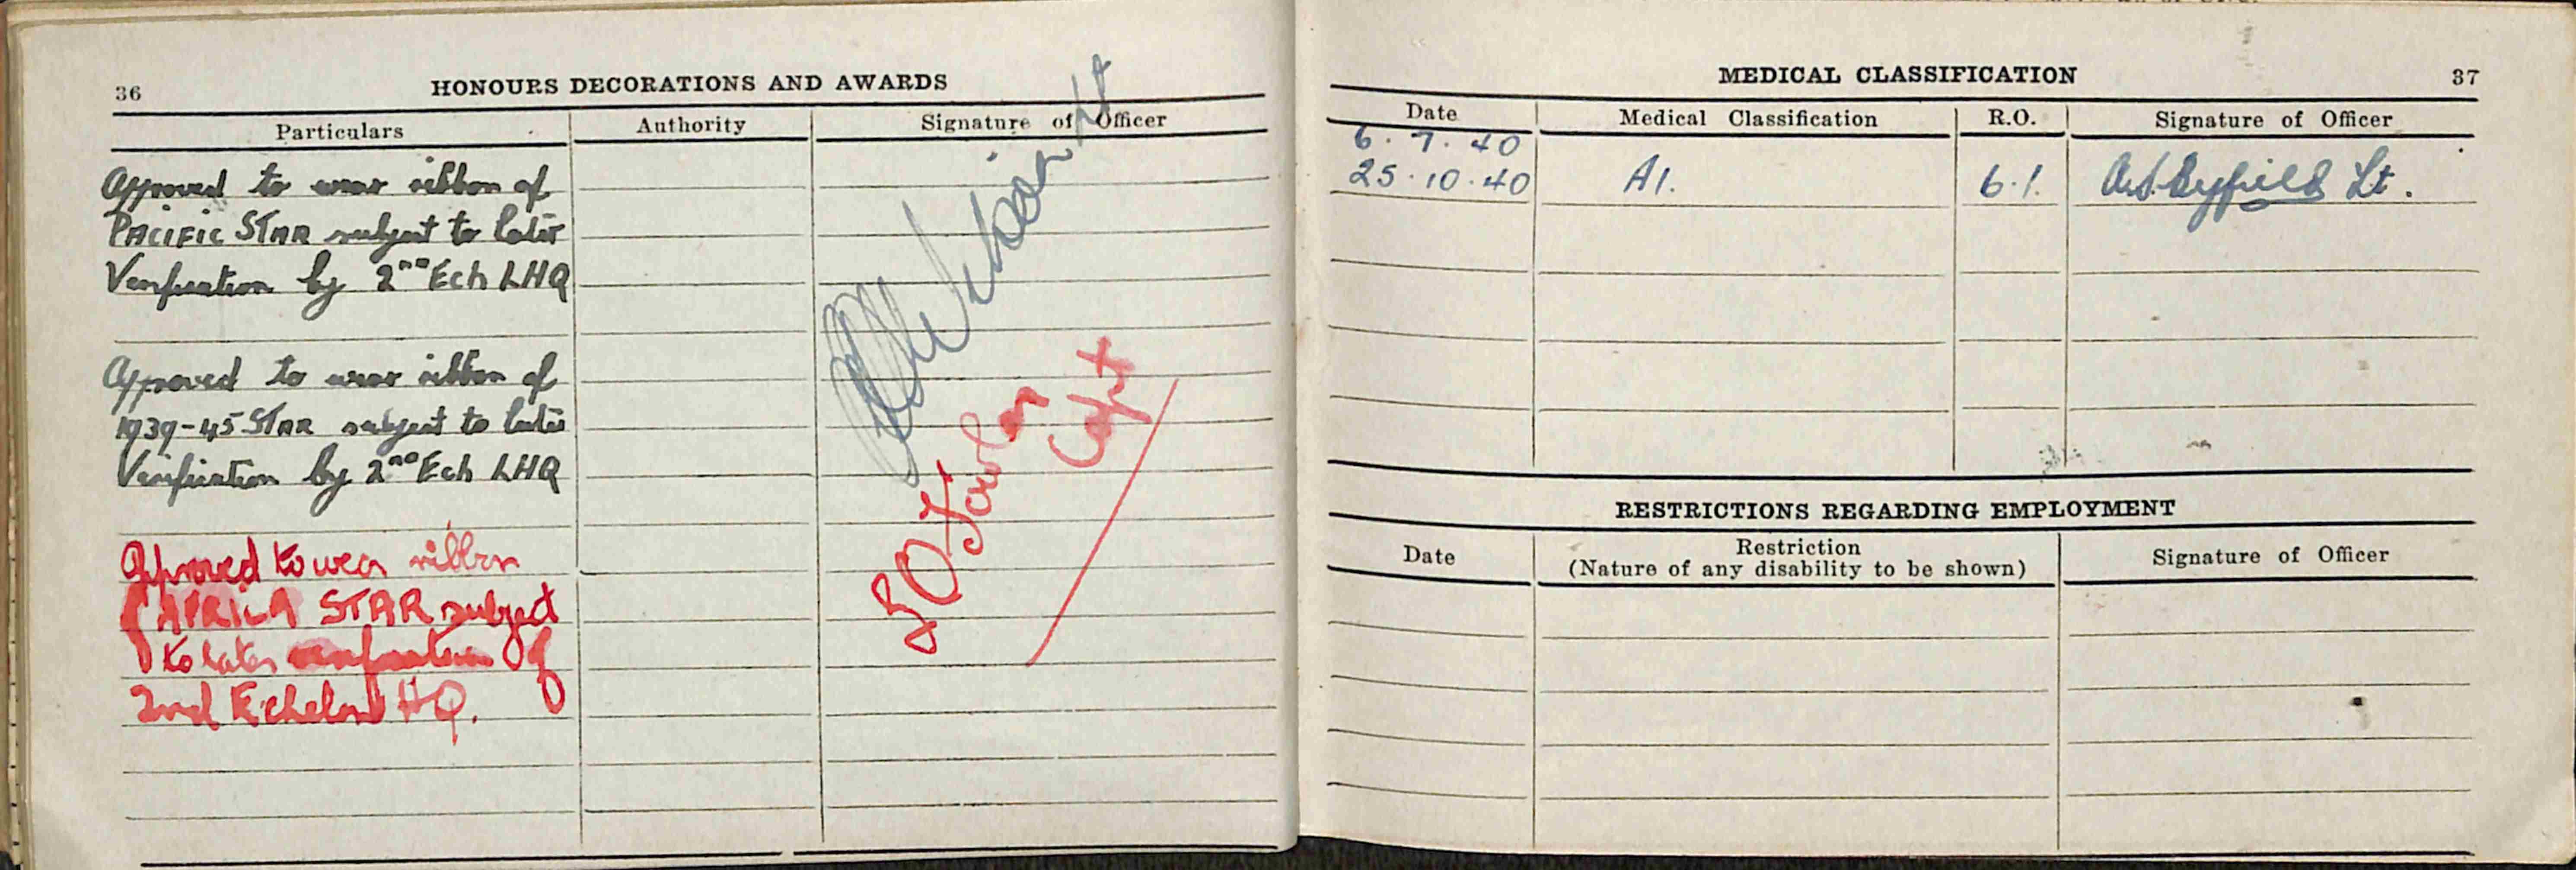 36
HONOURS DECORATIONS AND AWARDS
Particulars
Authority
Signature of Officer
Approved to wear ribbon of
PACIFIC STAR subject to later
Verification by 2nd Ech LHQ
Approved to wear ribbon of
1939-45 STAR subject to later
Verification by 2nd Ech LHQ
Approved to wear ribbon
of AFRICA STAR subject
to later verification of
2nd Echelon HQ.
Lt
Capt
MEDICAL CLASSIFICATION
37
Date
Medical Classification
R.O.
Signature of Officer
6.7.40
25.10.40 A1. 6.1. Lt.
RESTRICTIONS REGARDING EMPLOYMENT
Date
Restriction
(Nature of any disability to be shown)
Signature of Officer